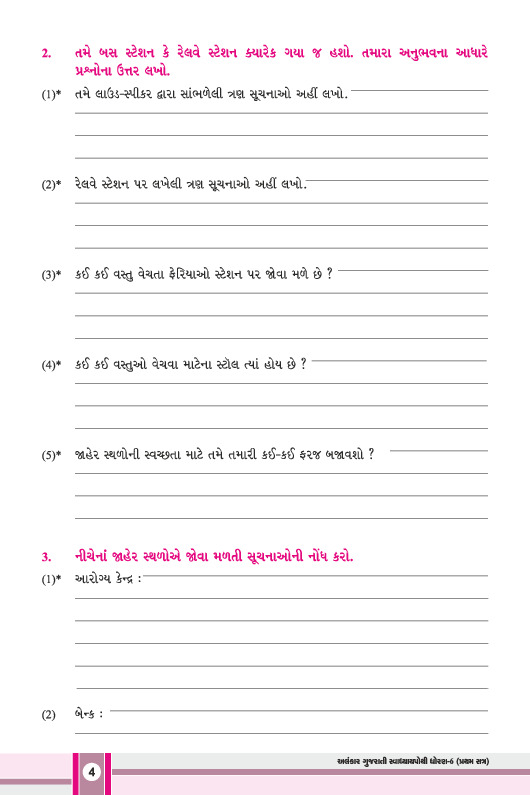 2. તમે બસ સ્ટેશન કે રેલવે સ્ટેશન ક્યારેક ગયા જ હશો. તમારા અનુભવના આધારે
પ્રશ્નોના ઉત્તર લખો.
(1)* તમે લાઉડ-સ્પીકર દ્વારા સાંભળેલી ત્રણ સૂચનાઓ અહીં લખો.
(2)* રેલવે સ્ટેશન પર લખેલી ત્રણ સૂચનાઓ અહીં લખો.
(3)* કઈ કઈ વસ્તુ વેચતા ફેરિયાઓ સ્ટેશન પર જોવા મળે છે ?
(4)* કઈ કઈ વસ્તુઓ વેચવા માટેના સ્ટૉલ ત્યાં હોય છે ?
(5)* જાહેર સ્થળોની સ્વચ્છતા માટે તમે તમારી કઈ-કઈ ફરજ બજાવશો ?
3. નીચેનાં જાહેર સ્થળોએ જોવા મળતી સૂચનાઓની નોંધ કરો.
(1)* આરોગ્ય કેન્દ્ર :
(2) બેન્ક :
અલંકાર ગુજરાતી સ્વાધ્યાયપોથી ધોરણ-6 (પ્રથમ સત્ર)
4